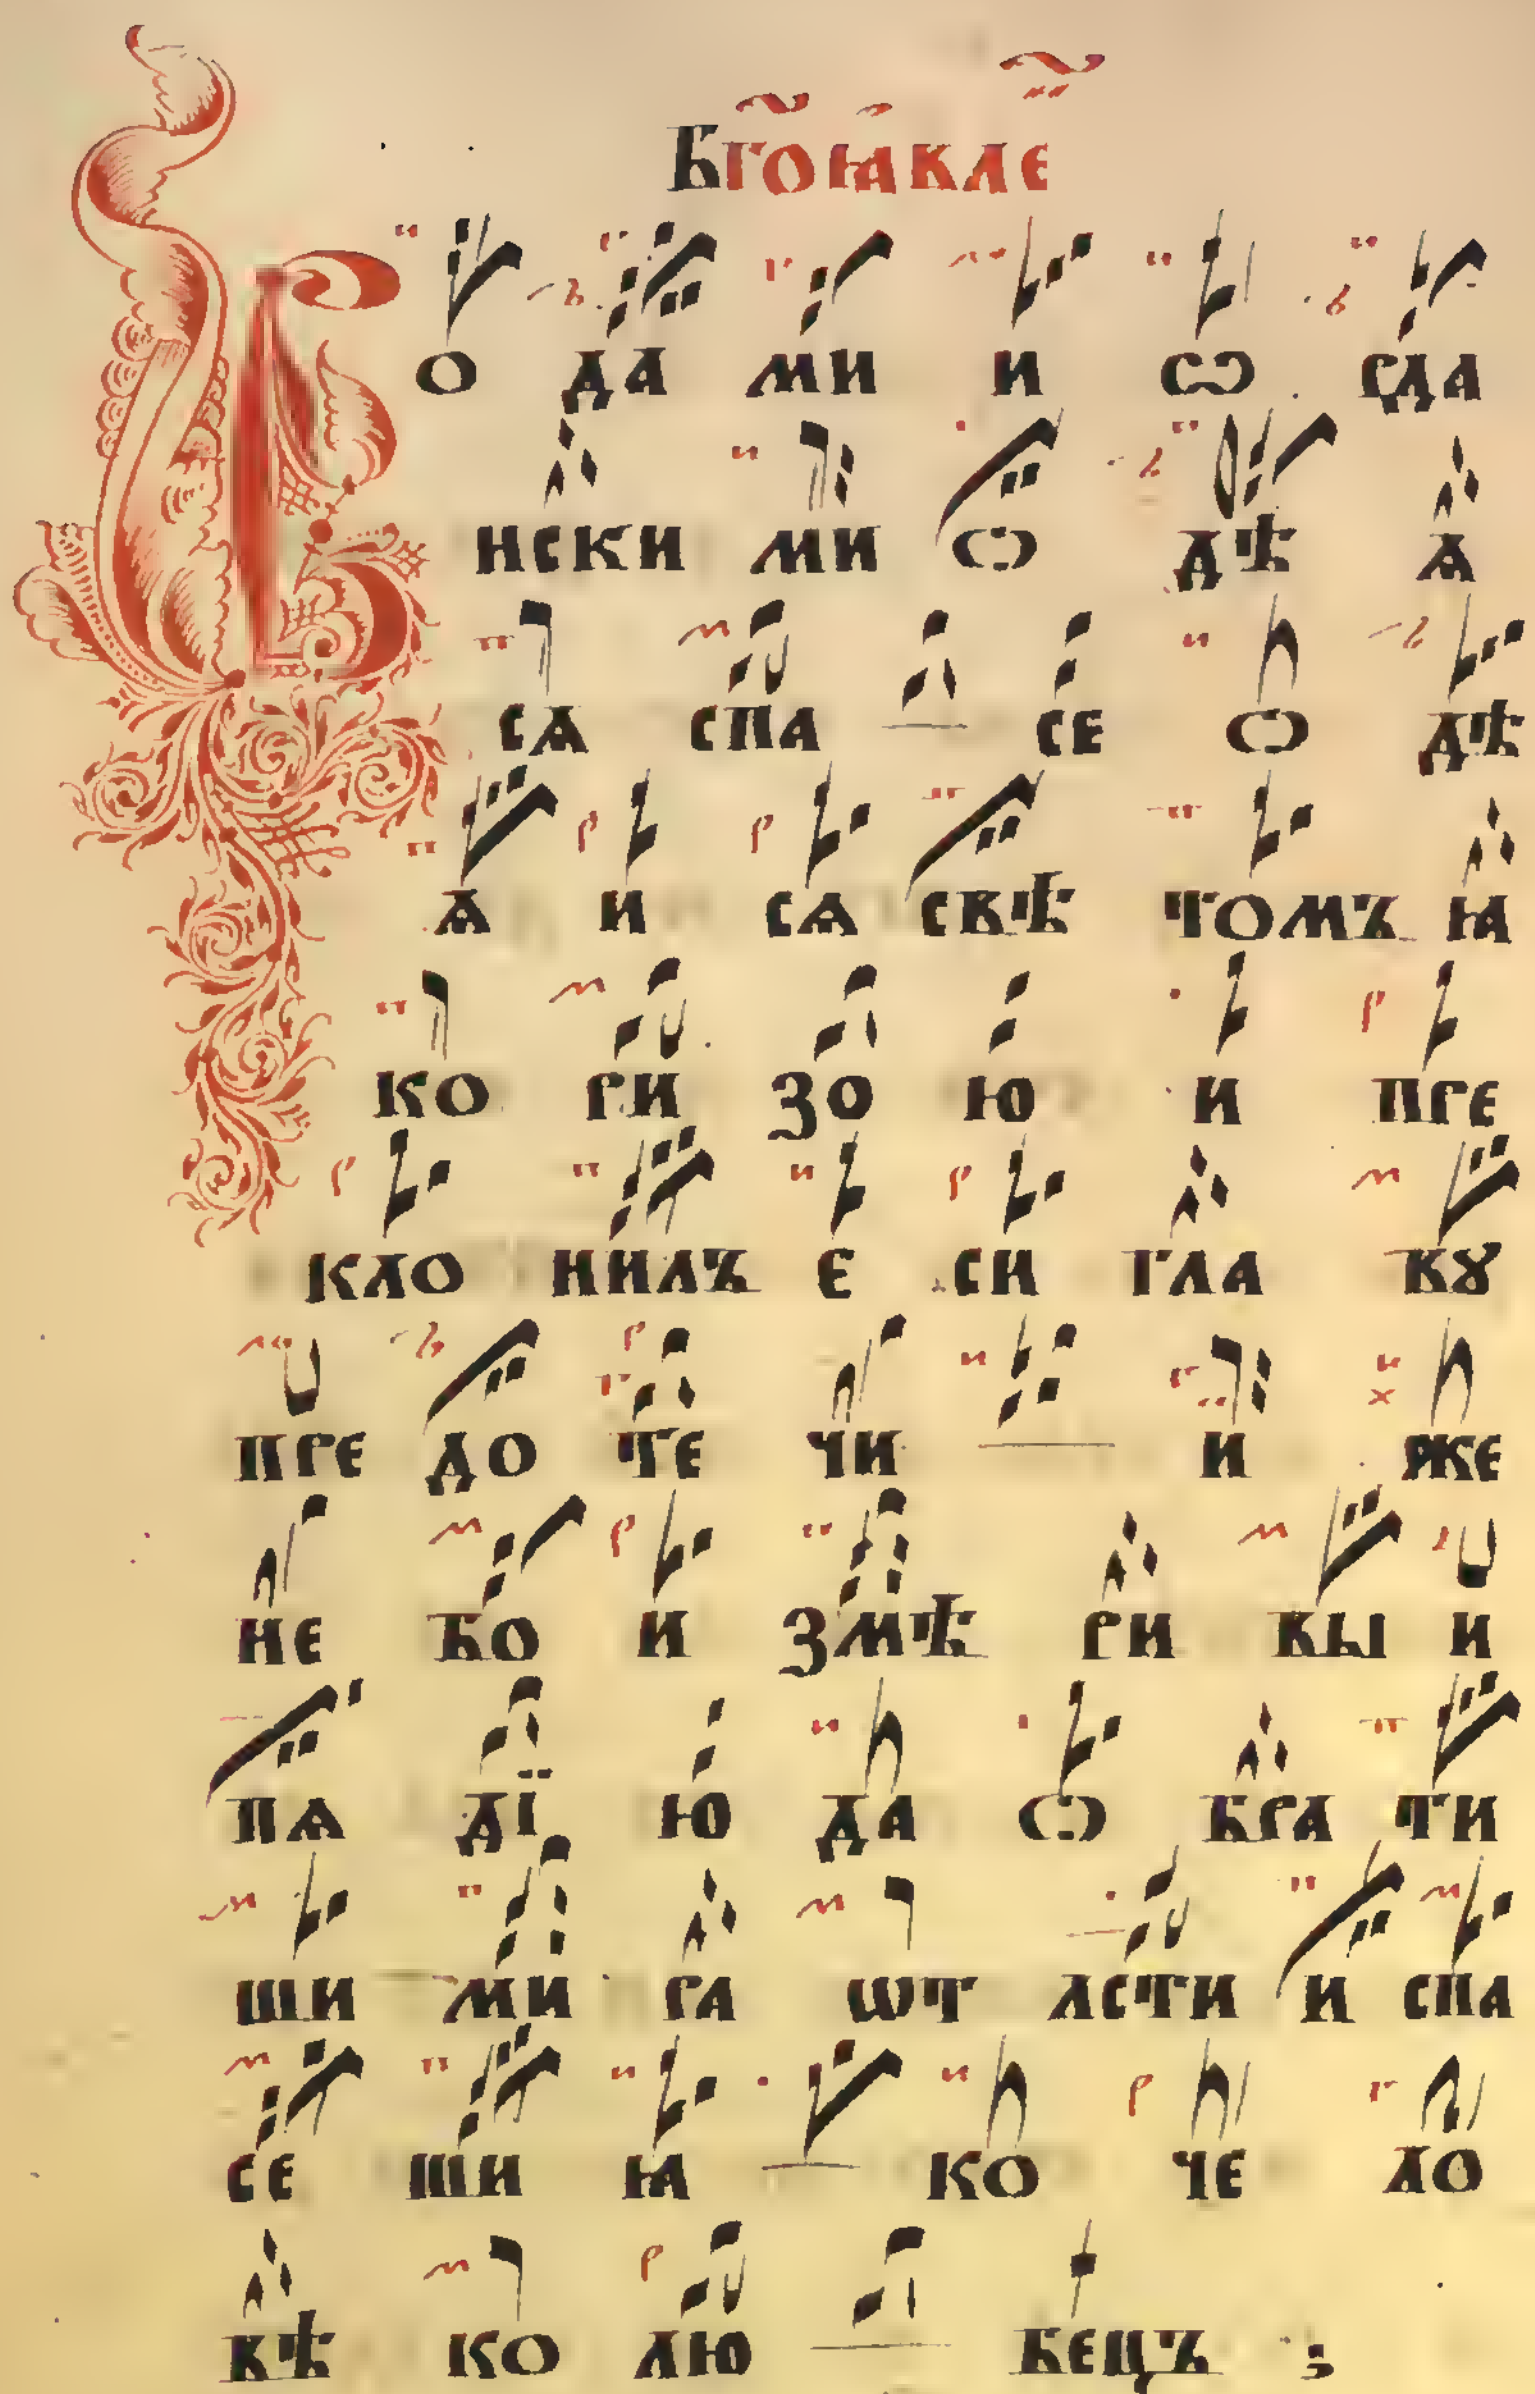 Бг҃оꙗвле
Во да ми и ѡ рда
нски ми ѡ дѣ ѧ
сѧ спа се ѡ дѣ
ѧ и сѧ свѣ томъ ꙗ
ко ри зо ю и пре
кло нилъ е си гла ву
пре до те чи и же
не бо и змѣ ри вы и
пѧ дї ю да ѡ бра ти
ши ми ра ѡт лсти и спа
се ши ꙗ ко че ло
вѣ ко лю бецъ ;